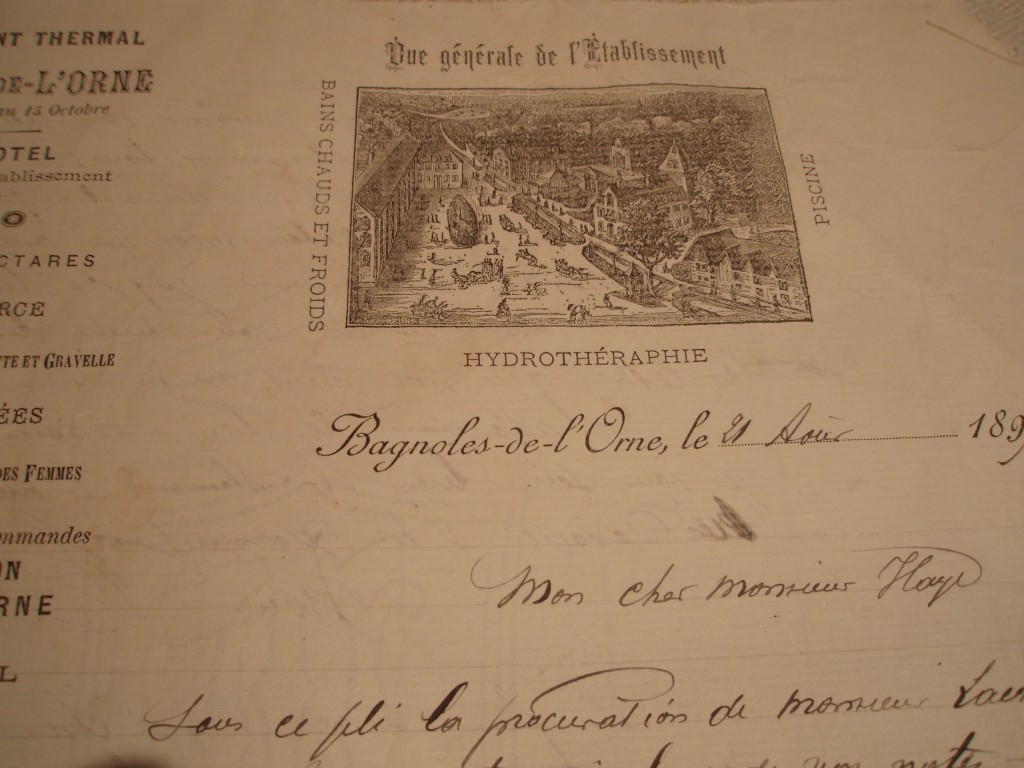 NT THERMAL
DE-L'ORNE
au 15 Octobre
OTEL
ablissement
O
CTARES
RCE
TTE ET GRAVELLE
ÉES
DES FEMMES
ommandes
ON
RNE
L
Vue générale de l'Établissement
BAINS CHAUDS ET FROIDS
PISCINE
HYDROTHÉRAPHIE
Bagnoles-de-l'Orne, le 21 Août 189
Mon cher monsieur
Sous ce pli la procuration de monsieur
vos notes